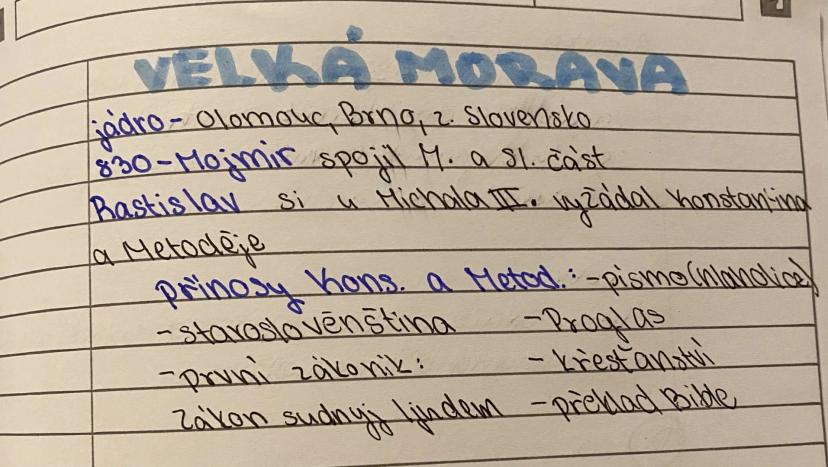 VELKÁ MORAVA
jádro - Olomouc, Brno, z. Slovensko
830 - Mojmír spojil M. a Sl. část
Rastislav si u Michala III. vyžádal Konstantina
a Metoděje
přínosy Kons. a Metod.: - písmo (hlaholice)
- staroslověnština - Proglas
- první zákoník: - křesťanství
Zákon sudnyj ljudem - překlad Bible